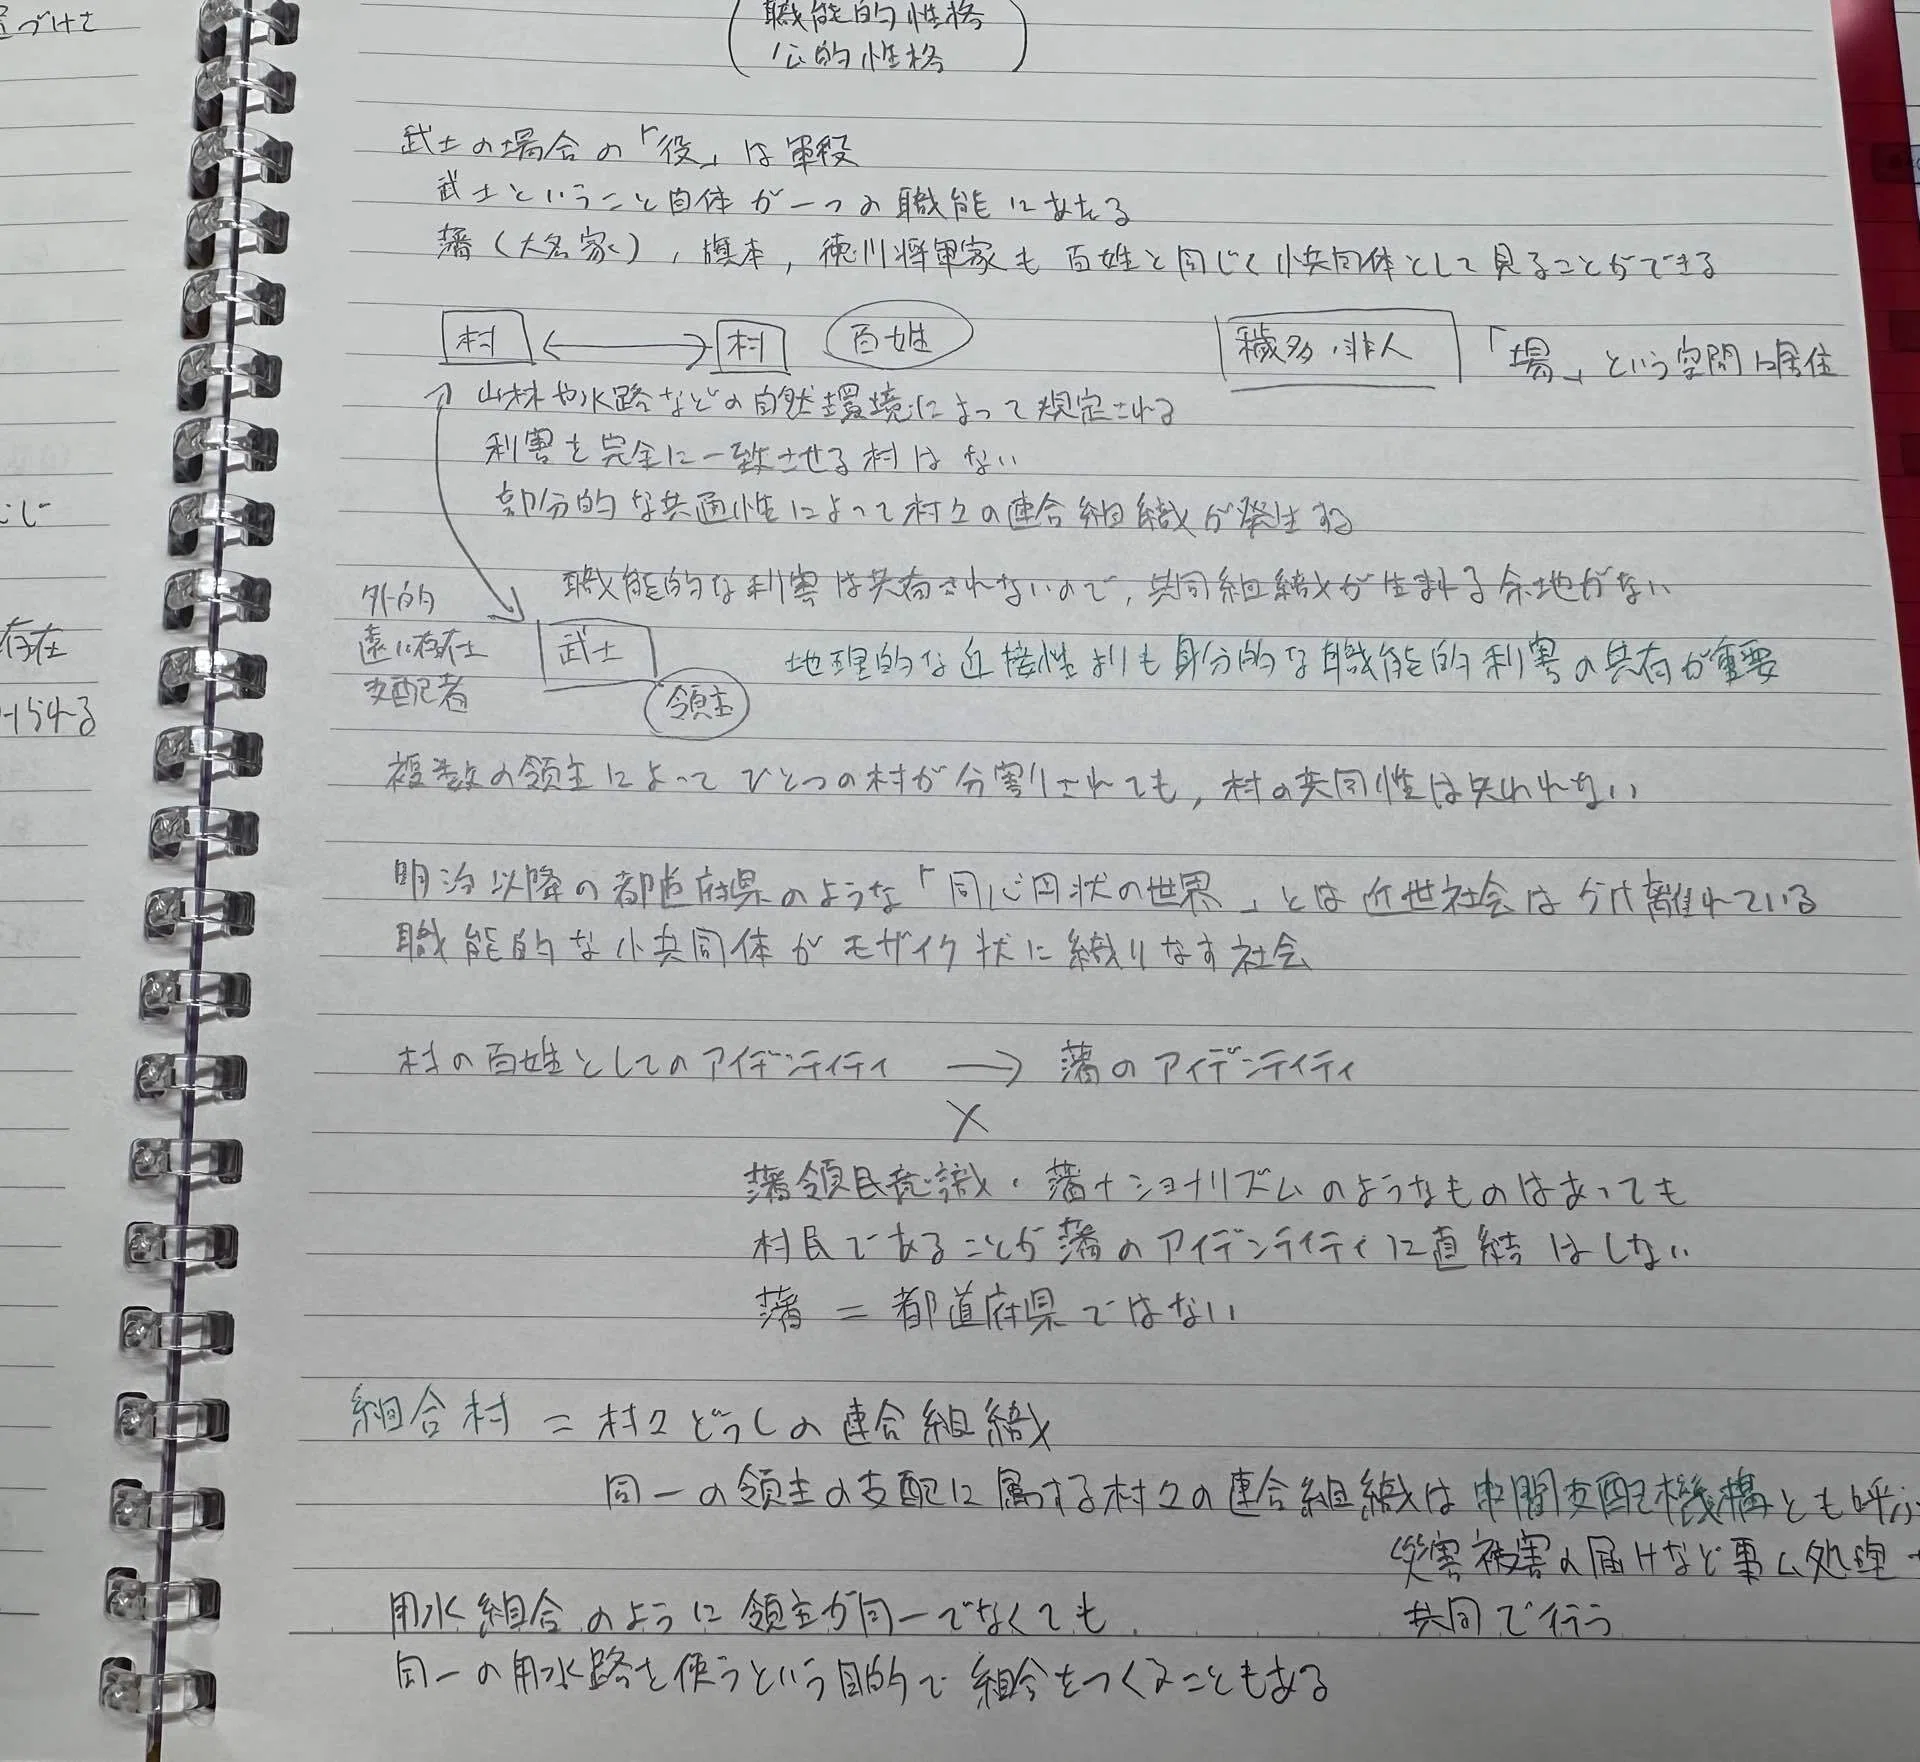 づけさ
職能的性格
公的性格
武士の場合の「役」は軍役
武士ということ自体が一つの職能にあたる
藩(大名家), 旗本, 徳川将軍家も 百姓と同じく小共同体として見ることができる
村 ⟷ 村 百姓 穢多・非人 「場」という空間に居住
山林や水路などの自然環境によって規定される
利害を完全に一致させる村はない
部分的な共通性によって村々の連合組織が発生する
職能的な利害は共有されないので, 共同組織が生まれる余地がない
外的
遠い存在
支配者
武士
領主
地理的な近接性よりも身分的な職能的利害の共有が重要
複数の領主によってひとつの村が分割されても, 村の共同性は失われない
明治以降の都道府県のような「同心円状の世界」とは近世社会はかけ離れている
職能的な小共同体がモザイク状に織りなす社会
村の百姓としてのアイデンティティ → 藩のアイデンティティ
×
藩領民意識・藩ナショナリズムのようなものはあっても
村民であることが藩のアイデンティティに直結はしない
藩 = 都道府県ではない
組合村 = 村々どうしの連合組織
同一の領主の支配に属する村々の連合組織は中間支配機構とも呼ぶ
災害被害の届けなど事ム処理
共同で行う
用水組合のように領主が同一でなくても
同一の用水路を使うという目的で組合をつくることもある
存在
られる